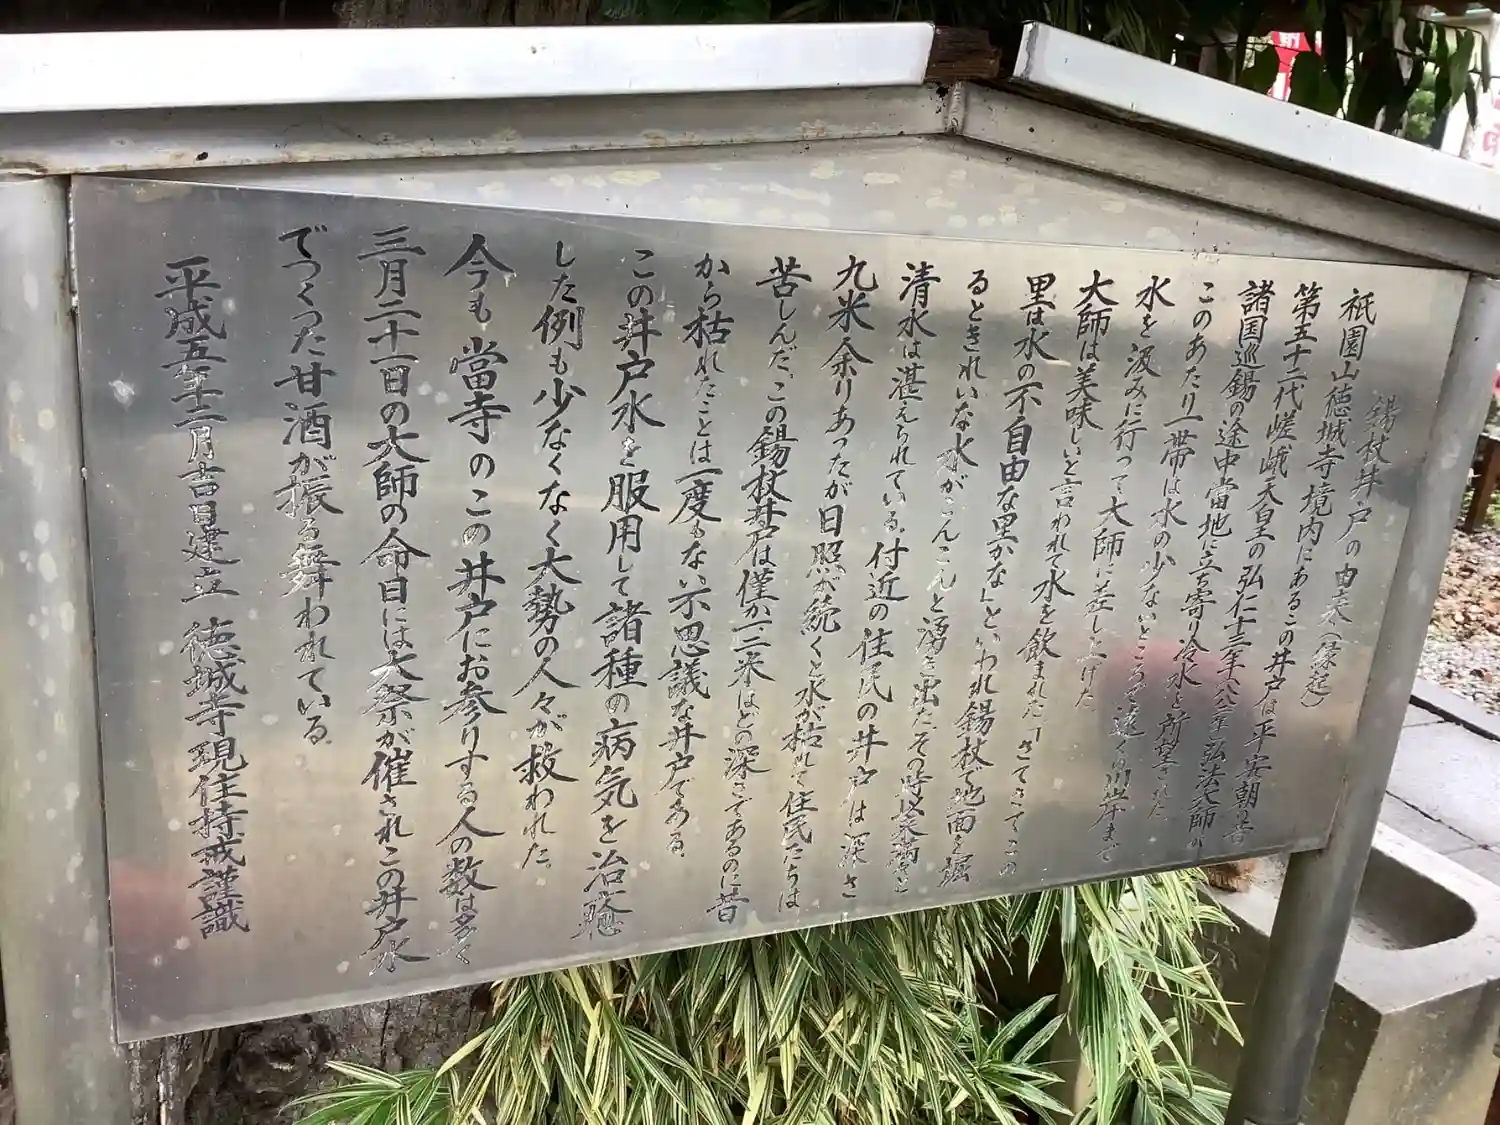 錫杖井戸の由来(縁起)
祇園山徳城寺境内にあるこの井戸は平安朝の昔
第五十二代嵯峨天皇の弘仁十三年八二二年弘法大師が
諸国巡錫の途中當地に立ち寄り冷水を所望された
このあたり一帯は水の少ないところで遠く川岸まで
水を汲みに行って大師に差し上げた
大師は美味しいと言われて水を飲まれた「さてさてこの
里は水の不自由な里かな」といわれ錫杖で地面を堀
るときれいな水がこんこんと湧き出たその時以来満々と
清水は湛えられている。付近の住民の井戸は深さ
九米余りあったが日照が続くと水が枯れて住民たちは
苦しんだ。この錫杖井戸は僅か一二米ほどの深さであるのに昔
から枯れたことは一度もない不思議な井戸である。
この井戸水を服用して諸種の病気を治癒
した例も少なくなく大勢の人々が救われた。
今も當寺のこの井戸にお参りする人の数は多く
三月二十一日の大師の命日には大祭が催されこの井戸水
でつくった甘酒が振る舞われている。
平成五年二月吉日建立 徳城寺現住持戒謹識